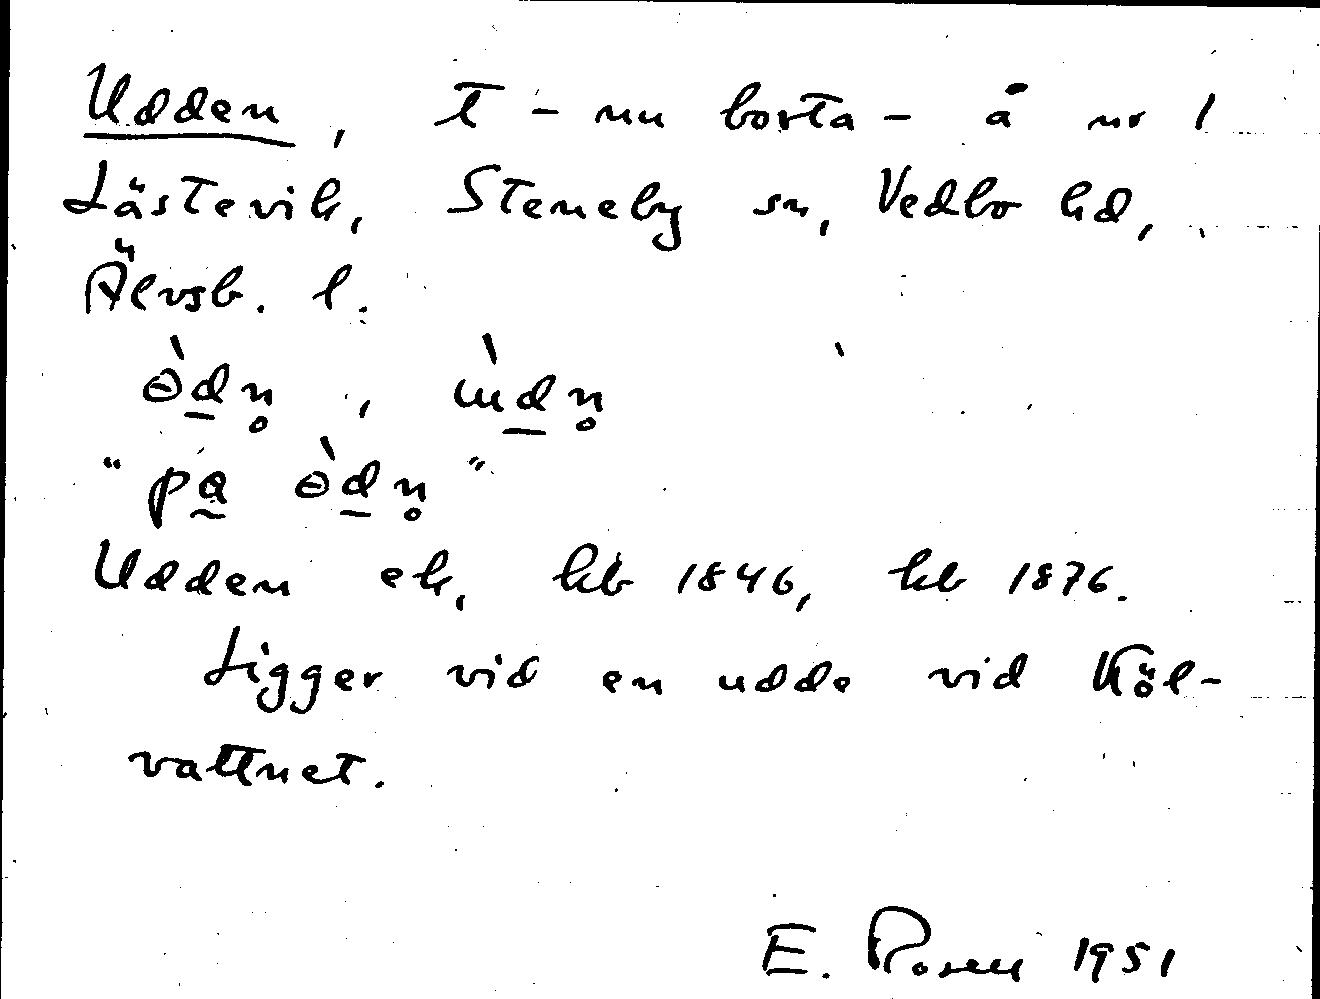 Udden, t - nu borta - å nr 1
Lästevik, Steneby sn, Vedbo hd,
Älvsb. l.
ɵ̀d̲n̥, ɯ̀d̲n̥
"pa̰ ɵ̀d̲n̥"
Udden ek, hb 1846, kb 1876.
Ligger vid en udde vid Köl-
vattnet.
E. Rosen 1951